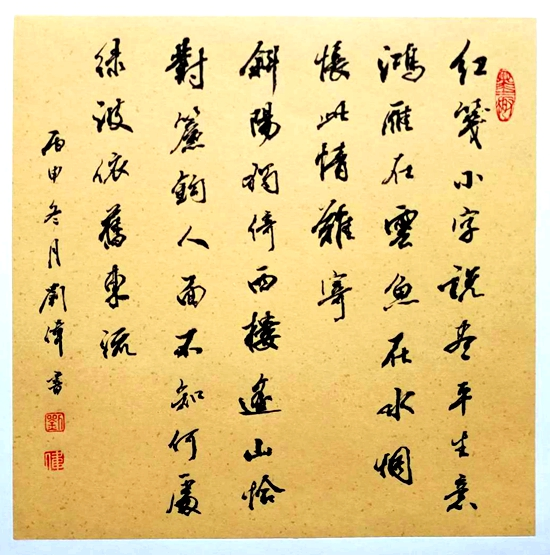 紅箋小字説盡平生意
鴻雁在雲魚在水惆
悵此情難寄
斜陽獨倚西樓遙山恰
對簾鉤人面不知何處
緑波依舊東流
丙申冬月劉偉書
劉
偉